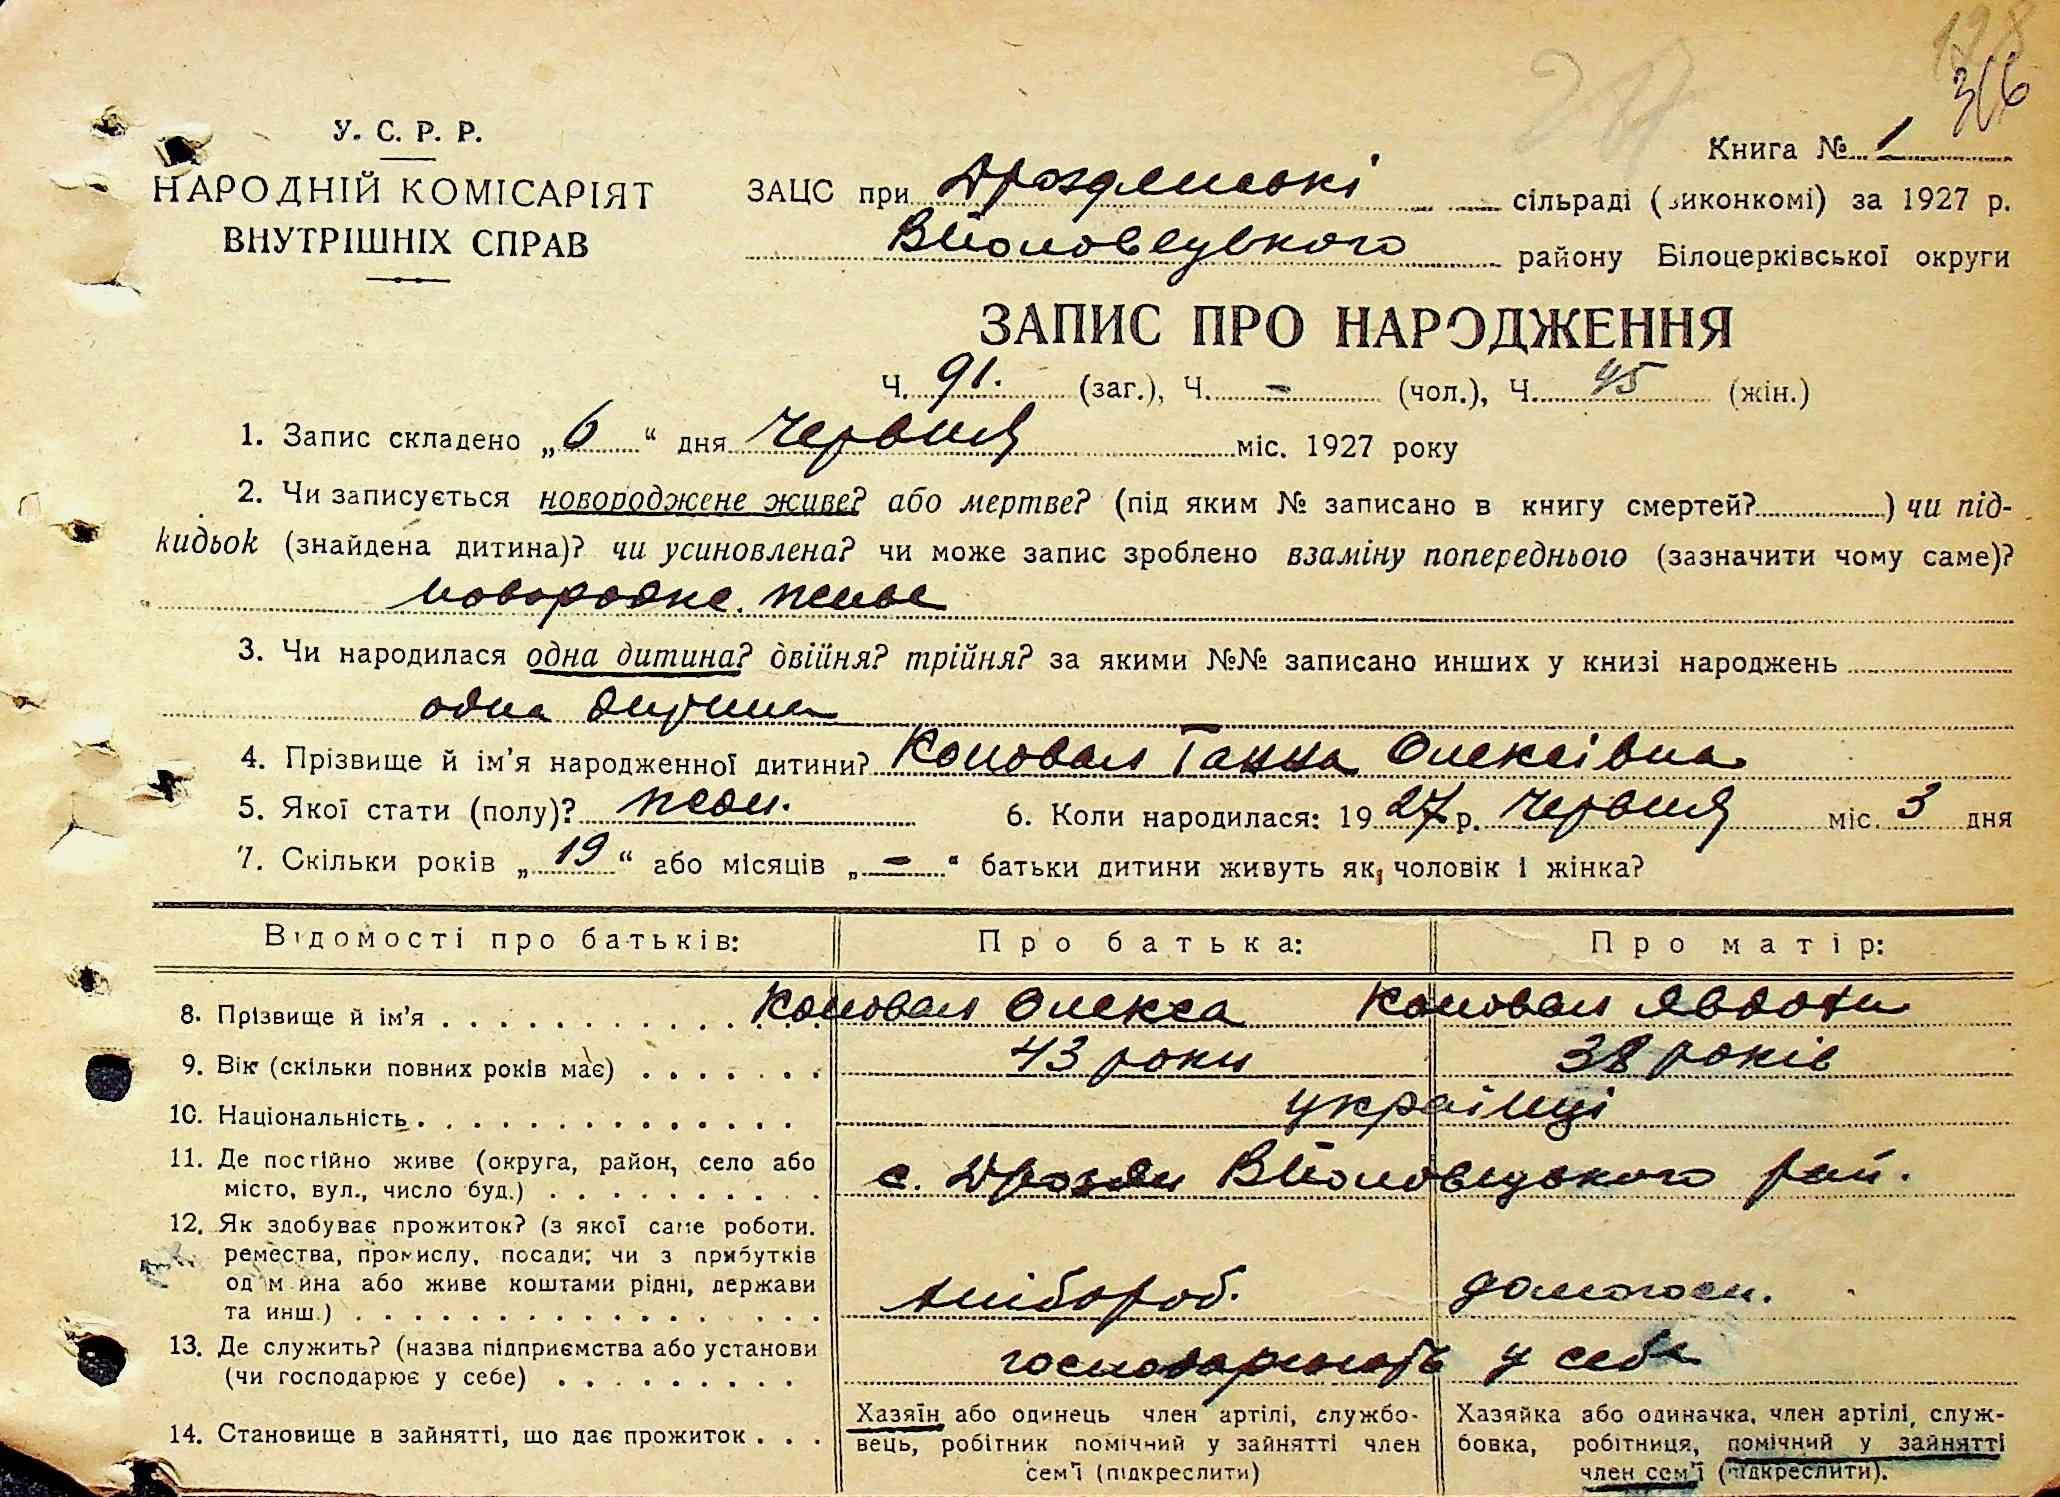 198
306
У. С. Р. Р.
НАРОДНІЙ КОМІСАРІЯТ
ВНУТРІШНІХ СПРАВ
Книга № 1
ЗАЦС при Дроздянські сільраді (виконкомі) за 1927 р.
Вйоловецького району Білоцерківської округи
ЗАПИС ПРО НАРОДЖЕННЯ
Ч. 91. (заг.), Ч. - (чол.), Ч. 45 (жін.)
1. Запис складено „6“ дня Червня міс. 1927 року
2. Чи записується новороджене живе? або мертве? (під яким № записано в книгу смертей? ) чи під-
кидьок (знайдена дитина)? чи усиновлена? чи може запис зроблено взаміну попереднього (зазначити чому саме)?
новородже. живе
3. Чи народилася одна дитина? двійня? трійня? за якими №№ записано инших у книзі народжень
одна дитина
4. Прізвище й ім'я народженної дитини? Коновал Ганна Олексіївна
5. Якої стати (полу)? жеди. 6. Коли народилася: 1927 р. Червня міс. 3 дня
7. Скільки років „19“ або місяців „-“ батьки дитини живуть як, чоловік і жінка?
Відомості про батьків: Про батька: Про матір:
8. Прізвище й ім'я Коновал Олекса Коновал Явдоха
9. Вік (скільки повних років має) 43 роки 38 років
10. Національність українці
11. Де постійно живе (округа, район, село або
місто, вул., число буд.) с. Дрозди Вйоловецького рай.
12. Як здобуває прожиток? (з якої саме роботи,
ремества, промислу, посади; чи з прибутків
од майна або живе коштами рідні, держави
та инш.) хлібороб. домогосп.
13. Де служить? (назва підприємства або установи
(чи господарює у себе) господарюють у себе
14. Становище в зайнятті, що дає прожиток
Хазяїн або одинець член артілі, службо-
вець, робітник помічний у зайнятті член
сем'ї (підкреслити)
Хазяйка або одиначка, член артілі, служ-
бовка, робітниця, помічний у зайнятті
член сем'ї (підкреслити).